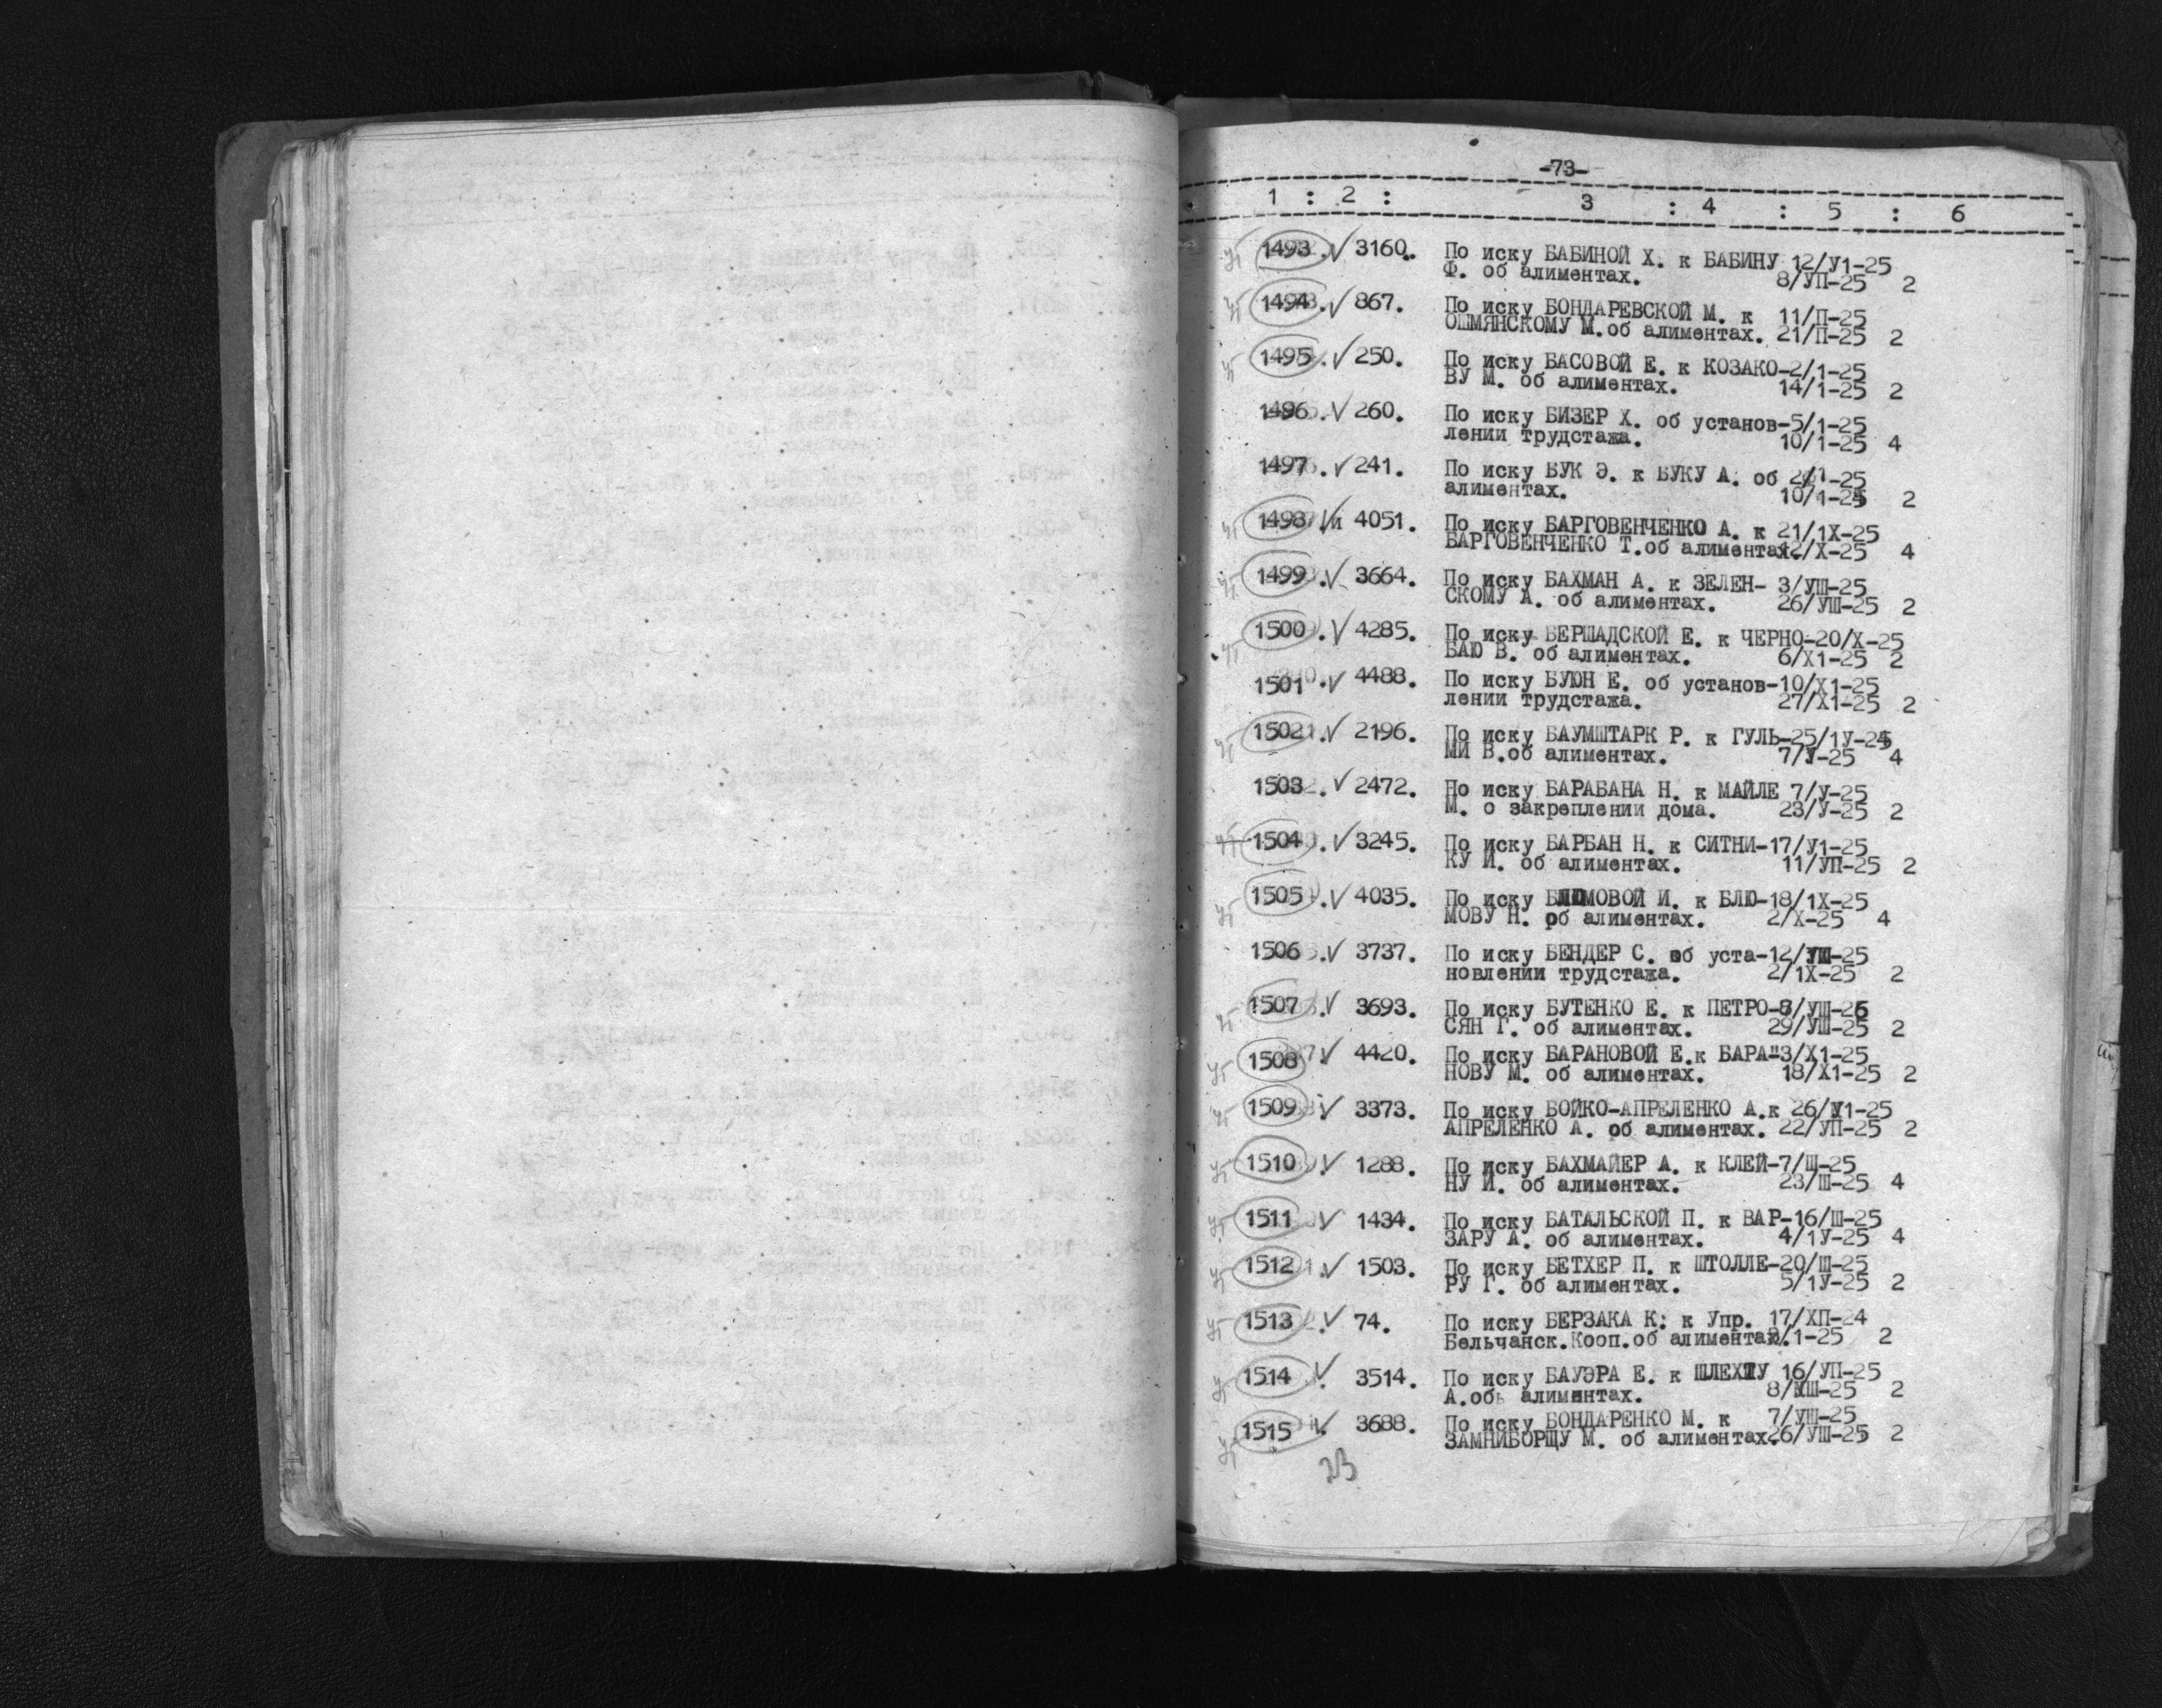 -73-
1 : 2 : 3 : 4 : 5 : 6
1493. √ 3160. По иску БАБИНОЙ Х. к БАБИНУ 12/У1-25
Ф. об алиментах. 8/УП-25 2
1494. √ 867. По иску БОНДАРЕВСКОЙ М. к 11/П-25
ОШМЯНСКОМУ М.об алиментах. 21/П-25 2
1495. √ 250. По иску БАСОВОЙ Е. к КОЗАКО-2/1-25
ВУ М. об алиментах. 14/1-25 2
1496. √ 260. По иску БИЗЕР Х. об установ-5/1-25
лении трудстажа. 10/1-25 4
1497. √ 241. По иску БУК Э. к БУКУ А. об 2/1-25
алиментах. 10/1-25 2
1498 √ 4051. По иску БАРГОВЕНЧЕНКО А. к 21/1Х-25
БАРГОВЕНЧЕНКО Т.об алиментах. 12/Х-25 4
1499. √ 3664. По иску БАХМАН А. к ЗЕЛЕН- 3/УШ-25
СКОМУ А. об алиментах. 26/УШ-25 2
1500. √ 4285. По иску БЕРШАДСКОЙ Е. к ЧЕРНО-20/Х-25
БАЮ В. об алиментах. 6/Х1-25 2
1501. √ 4488. По иску БУЮН Е. об установ-10/Х1-25
лении трудстажа. 27/Х1-25 2
1502. √ 2196. По иску БАУМШТАРК Р. к ГУЛЬ-25/1У-25
МИ В.об алиментах. 7/У-25 4
1503. √ 2472. По иску БАРАБАНА Н. к МАЙЛЕ 7/У-25
М. о закреплении дома. 23/У-25 2
1504. √ 3245. По иску БАРБАН Н. к СИТНИ-17/У1-25
КУ И. об алиментах. 11/УП-25 2
1505. √ 4035. По иску БЛЮМОВОЙ И. к БЛЮ-18/1Х-25
МОВУ Н. об алиментах. 2/Х-25 4
1506. √ 3737. По иску БЕНДЕР С. об уста-12/УШ-25
новлении трудстажа. 2/1Х-25 2
1507. √ 3693. По иску БУТЕНКО Е. к ПЕТРО-8/УШ-25
СЯН Г. об алиментах. 29/УШ-25 2
1508 √ 4420. По иску БАРАНОВОЙ Е.к БАРА-3/Х1-25
НОВУ М. об алиментах. 18/Х1-25 2
1509 √ 3373. По иску БОЙКО-АПРЕЛЕНКО А.к 26/У1-25
АПРЕЛЕНКО А. об алиментах. 22/УП-25 2
1510 √ 1288. По иску БАХМАЙЕР А. к КЛЕЙ-7/Ш-25
НУ И. об алиментах. 23/Ш-25 4
1511 √ 1434. По иску БАТАЛЬСКОЙ П. к ВАР-16/Ш-25
ЗАРУ А. об алиментах. 4/1У-25 4
1512 √ 1503. По иску БЕТХЕР П. к ШТОЛЛЕ-20/Ш-25
РУ Г. об алиментах. 5/1У-25 2
1513. √ 74. По иску БЕРЗАКА К. к Упр. 17/ХП-24
Бельчанск.Кооп.об алиментах. /1-25 2
1514 √ 3514. По иску БАУЭРА Е. к ШЛЕХТУ 16/УП-25
А.об алиментах. 8/УШ-25 2
1515 √ 3688. По иску БОНДАРЕНКО М. к 7/УШ-25
ЗАМНИБОРЩУ М. об алиментах.26/УШ-25 2
23